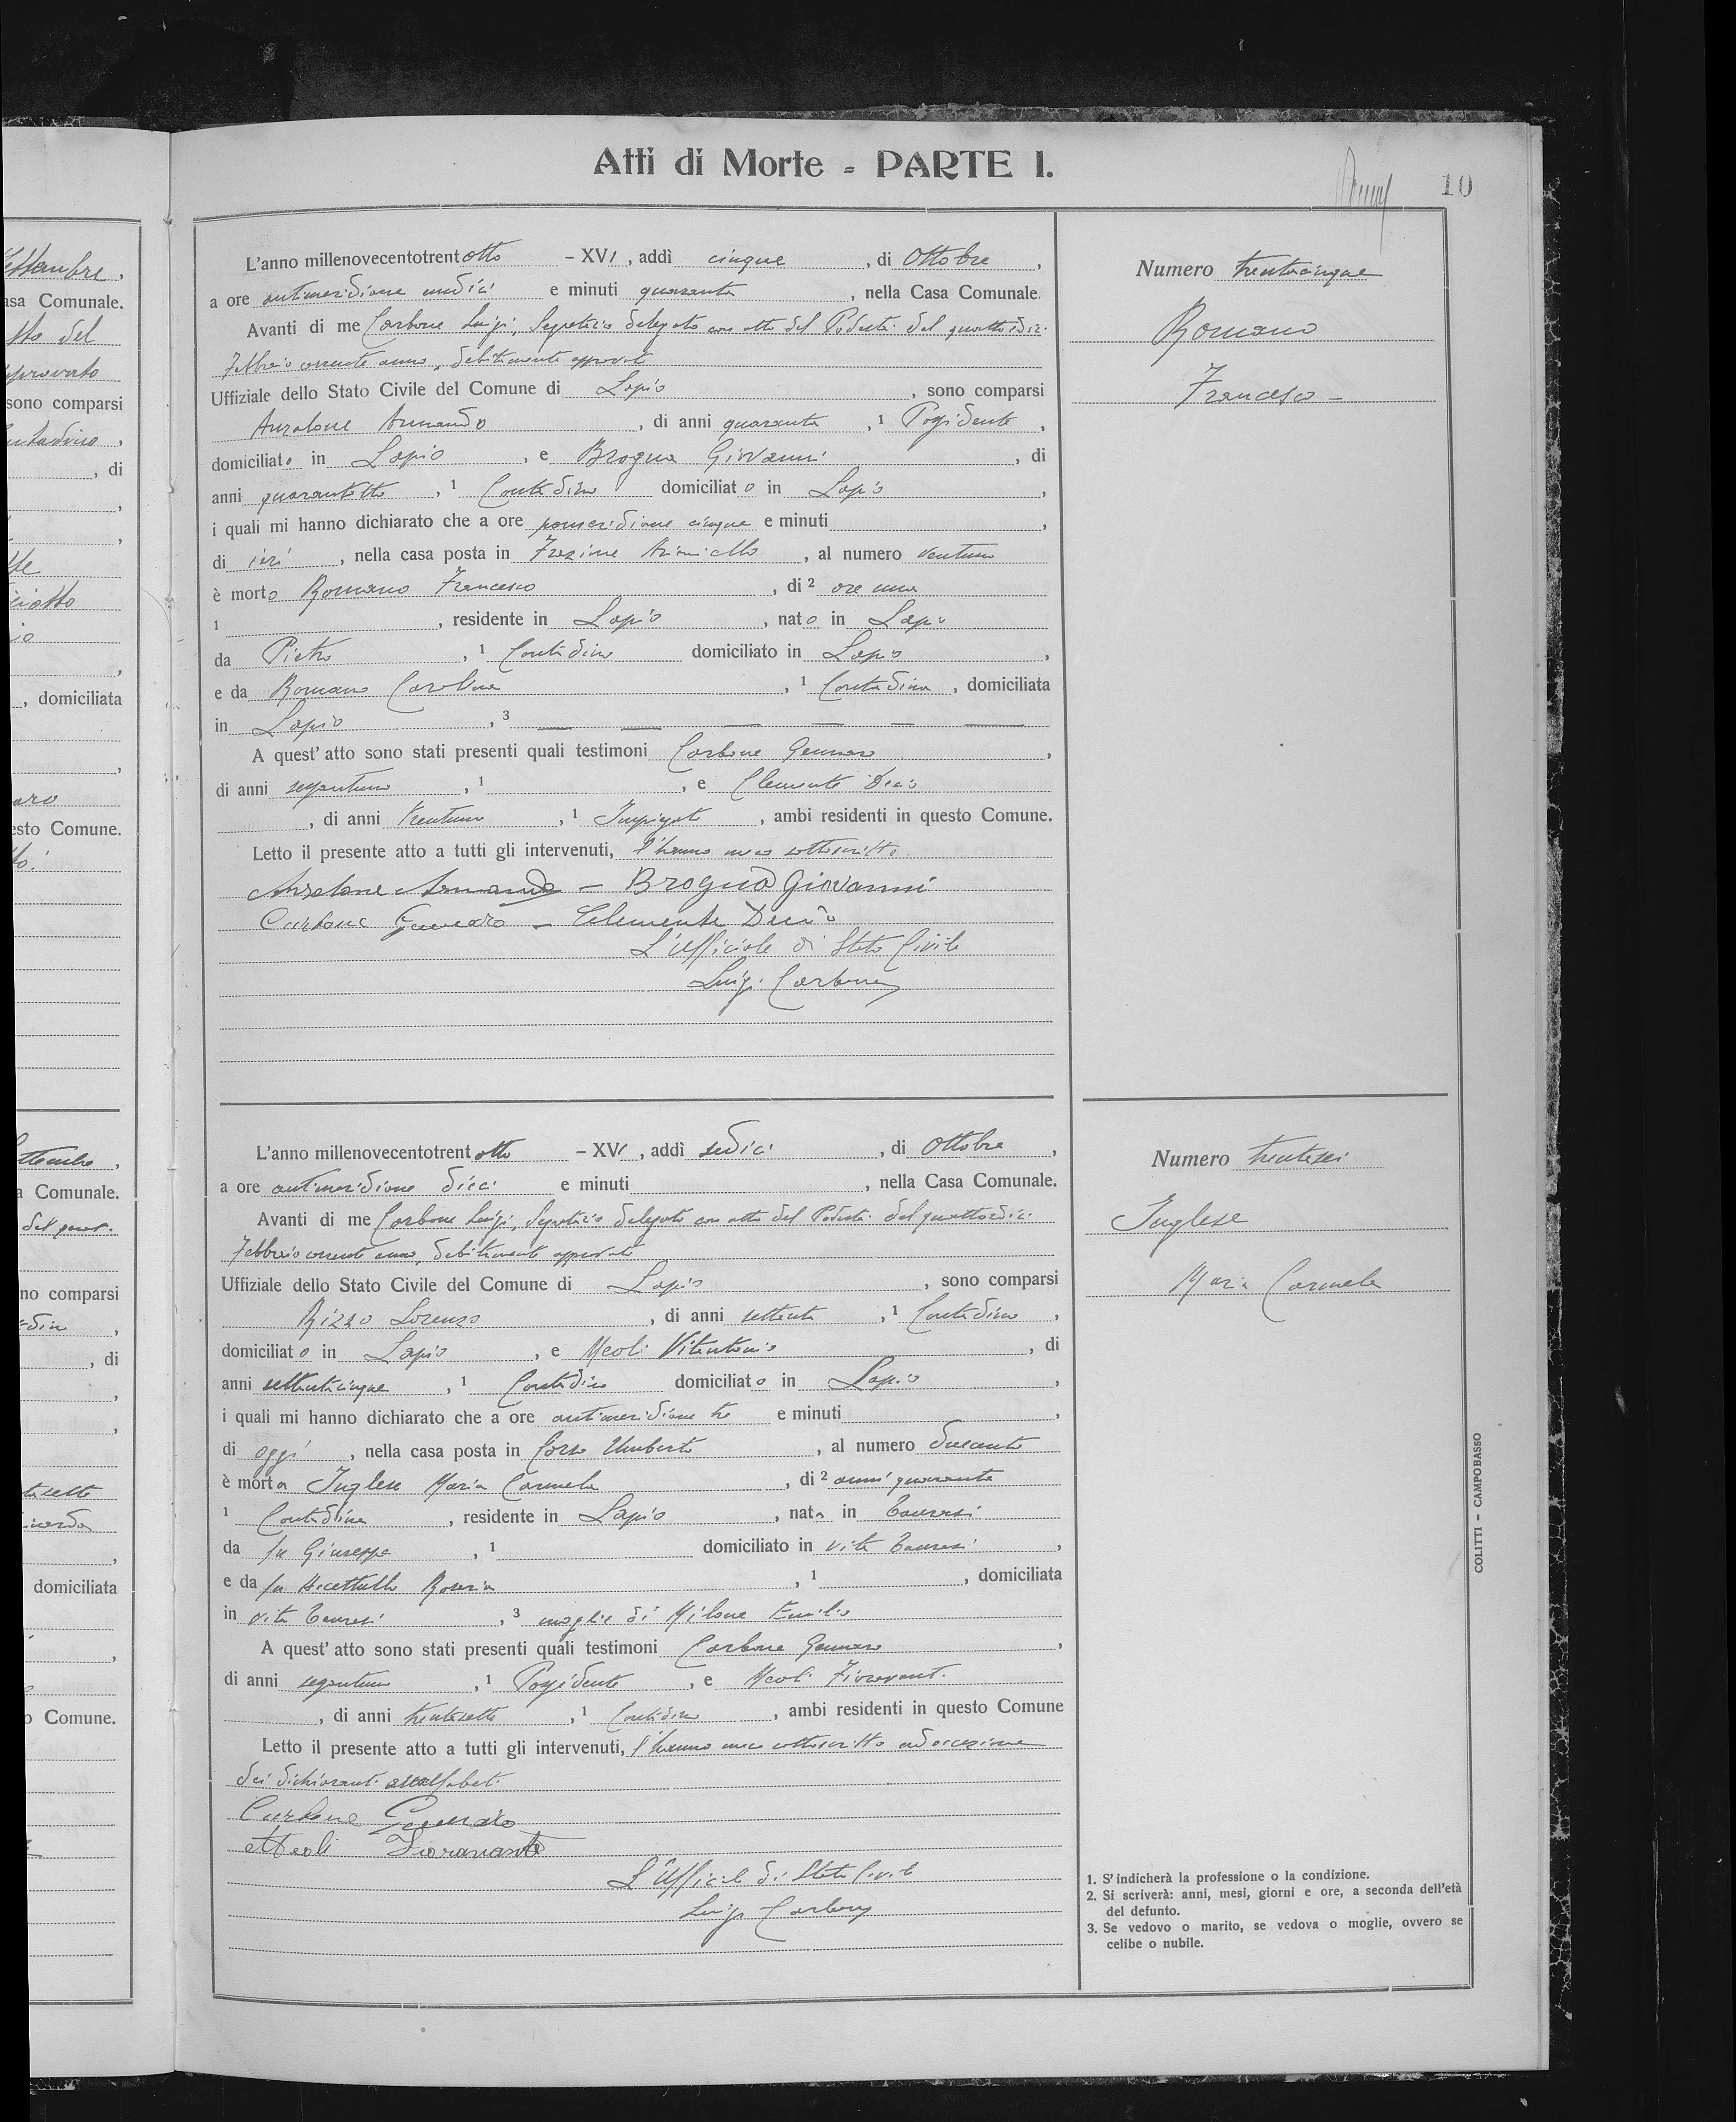 Atti di Morte = PARTE I.
10
L'anno millenovecentotrentotto – XVI, addì cinque, di Ottobre,
a ore antimeridiane undici e minuti quaranta, nella Casa Comunale.
Avanti di me Carbone Luigi, Segretario delegato con atto del Podestà del quattordici
Febbraio corrente anno, debitamente approvato
Uffiziale dello Stato Civile del Comune di Lapio, sono comparsi
Anzalone Armando, di anni quaranta, 1 Possidente,
domiciliato in Lapio, e Brogna Giovanni, di
anni quarantotto, 1 Contadino domiciliato in Lapio,
i quali mi hanno dichiarato che a ore pomeridiane cinque e minuti,
di ieri, nella casa posta in Frazione Arianiello, al numero ventuno
è morto Romano Francesco, di 2 ore una
1, residente in Lapio, nato in Lapio
da Pietro, 1 Contadino domiciliato in Lapio,
e da Romano Carolina, 1 Contadina, domiciliata
in Lapio, 3 — — — — — —
A quest' atto sono stati presenti quali testimoni Carbone Gennaro,
di anni sessantuno, 1, e Clemente Decio
, di anni trentuno, 1 Impiegato, ambi residenti in questo Comune.
Letto il presente atto a tutti gli intervenuti, l'hanno meco sottoscritto
Anzalone Armando – Brogna Giovanni
Carbone Gennaro – Clemente Decio
L'Ufficiale di Stato Civile
Luigi Carbone
Numero trentacinque
Romano
Francesco –
L'anno millenovecentotrentotto – XVI, addì sedici, di Ottobre,
a ore antimeridiane dieci e minuti, nella Casa Comunale.
Avanti di me Carbone Luigi, Segretario delegato con atto del Podestà del quattordici
Febbraio corrente anno, debitamente approvato
Uffiziale dello Stato Civile del Comune di Lapio, sono comparsi
Rizzo Lorenzo, di anni settanta, 1 Contadino,
domiciliato in Lapio, e Meoli Vitantonio, di
anni settantacinque, 1 Contadino domiciliato in Lapio,
i quali mi hanno dichiarato che a ore antimeridiane tre e minuti,
di oggi, nella casa posta in Corso Umberto, al numero duecento
è morta Inglese Maria Carmela, di 2 anni quaranta
1 Contadina, residente in Lapio, nata in Taurasi
da fu Giuseppe, 1 domiciliato in vita Taurasi,
e da fu Rosaria, 1, domiciliata
in vita Taurasi, 3 moglie di Milone Emilio
A quest' atto sono stati presenti quali testimoni Carbone Gennaro,
di anni sessantuno, 1 Possidente, e Meoli Fioravante
, di anni trentasette, 1 Contadino, ambi residenti in questo Comune
Letto il presente atto a tutti gli intervenuti, l'hanno meco sottoscritto ad eccezione
dei dichiaranti analfabeti
Carbone Gennaro
Meoli Fioravante
L'Ufficiale di Stato Civile
Luigi Carbone
Numero trentasei
Inglese
Maria Carmela
1. S'indicherà la professione o la condizione.
2. Si scriverà: anni, mesi, giorni e ore, a seconda dell'età
del defunto.
3. Se vedovo o marito, se vedova o moglie, ovvero se
celibe o nubile.
COLITTI – CAMPOBASSO